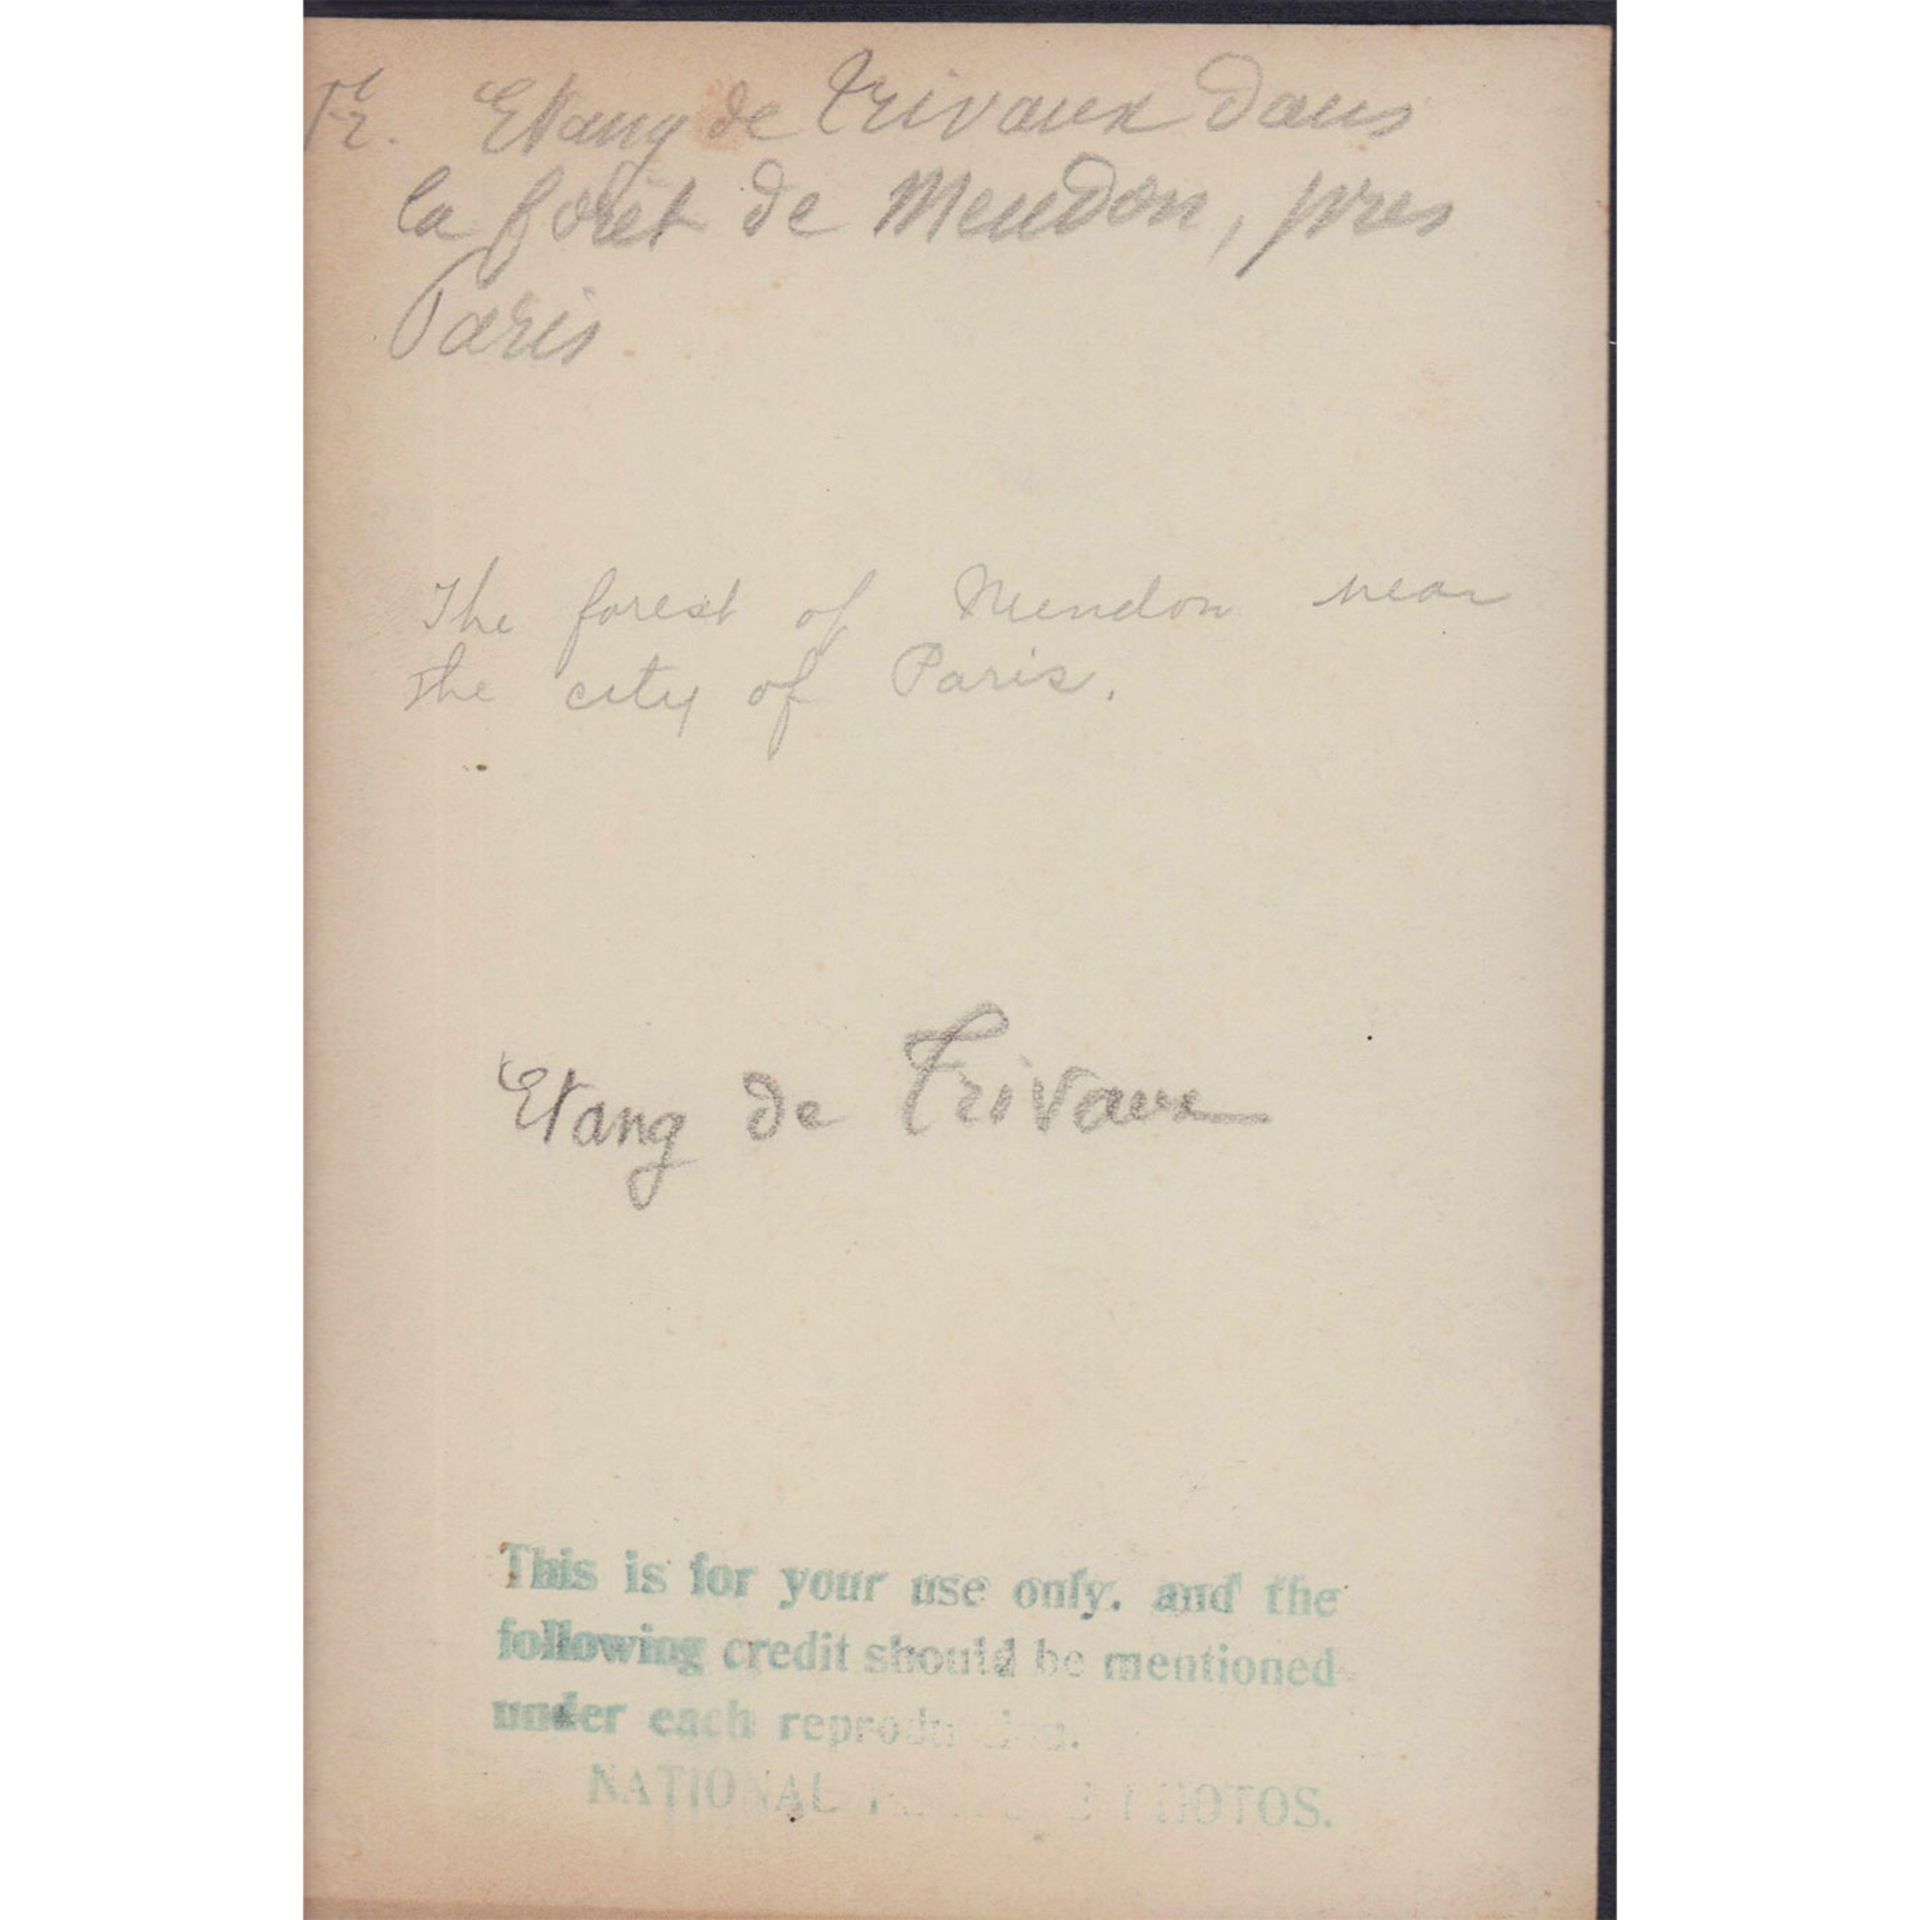 Fr. Etang de Trivaux dans
la forêt de Meudon, près
Paris
The forest of Meudon near
the city of Paris.
Etang de Trivaux
This is for your use only. and the
following credit should be mentioned
under each reproduction.
NATIONAL PHOTOS.